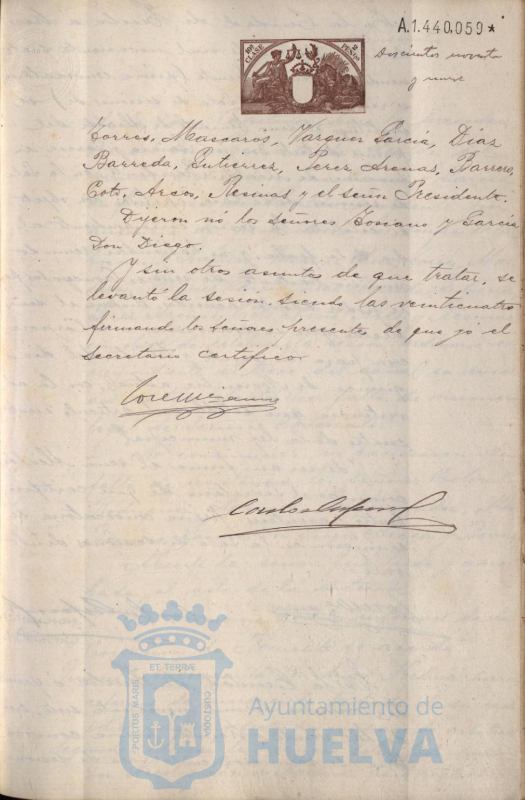 A.1.440,059*
10ª CLASE
2 PESETAS
Doscientos noventa
y nueve
Torres, Mascarós, Vazquez García, Díaz
Barreda, Gutierrez, Perez Arenas, Barrero,
Coto, Arcos, Resinas y el señor Presidente.
Dijeron nó los señores Tosiano y García
Don Diego.
Y sin otros asuntos de que tratar, se
levantó la sesión, siendo las veinticuatro
firmando los señores presentes de que yó el
secretario certifico.
PORTUS MARIS
ET TERRÆ
CUSTODIA
Ayuntamiento de
HUELVA